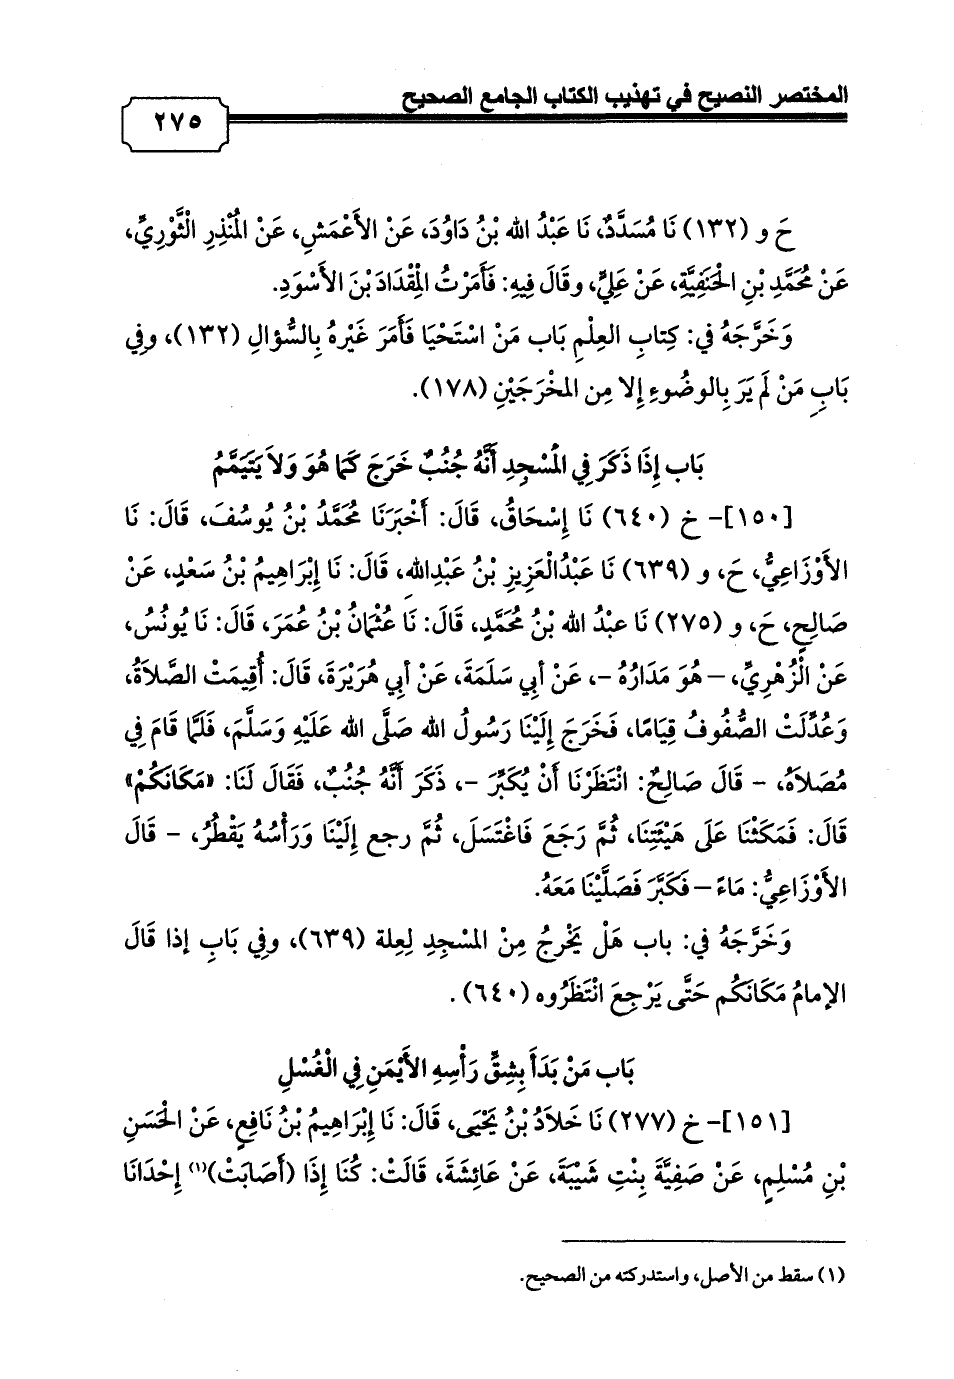 المختصر النصيح في تهذيب الكتاب الجامع الصحيح
٢٧٥
حَ و (١٣٢) نَا مُسَدَّدٌ، نَا عَبْدُ الله بْنُ دَاوُدَ، عَنْ الأَعْمَشِ، عَنْ الْمُنْذِرِ الْثَّوْرِيِّ،
عَنْ مُحَمَّدِ بْنِ الْحَنَفِيَّةِ، عَنْ عَلِيٍّ، وقَالَ فِيهِ: فَأَمَرْتُ الْمِقْدَادَ بْنَ الأَسْوَدِ.
وَخَرَّجَهُ في: كِتابِ العِلْمِ بَاب مَنْ اسْتَحْيَا فَأَمَرَ غَيْرَهُ بِالسُّؤالِ (١٣٢)، وفِي
بَابِ مَنْ لَمْ يَرَ بِالوضُوءِ إِلا مِن المَخْرَجَيْنِ (١٧٨).
بَاب إِذَا ذَكَرَ فِي الْمَسْجِدِ أَنَّهُ جُنُبٌ خَرَجَ كَمَا هُوَ وَلاَ يَتَيَمَّمُ
[١٥٠]- خ (٦٤٠) نَا إِسْحَاقُ، قَالَ: أَخْبَرَنَا مُحَمَّدُ بْنُ يُوسُفَ، قَالَ: نَا
الأَوْزَاعِيُّ، حَ، و (٦٣٩) نَا عَبْدُالْعَزِيزِ بْنُ عَبْدِالله، قَالَ: نَا إِبْرَاهِيمُ بْنُ سَعْدٍ، عَنْ
صَالِحٍ، حَ، و (٢٧٥) نَا عبْدُ الله بْنُ مُحَمَّدٍ، قَالَ: نَا عُثْمَانُ بْنُ عُمَرَ، قَالَ: نَا يُونُسُ،
عَنْ الْزُهْرِيِّ، – هُوَ مَدَارُهُ –، عَنْ أبِي سَلَمَةَ، عَنْ أبِي هُرَيْرَةَ، قَالَ: أُقِيمَتْ الصَّلاَةُ،
وَعُدِّلَتْ الصُّفُوفُ قِيَامًا، فَخَرَجَ إِلَيْنَا رَسُولُ الله صَلَّى الله عَلَيْهِ وَسَلَّمَ، فَلَمَّا قَامَ فِي
مُصَلاَهُ، – قَالَ صَالِحٌ: انْتَظَرْنَا أَنْ يُكَبِّرَ –، ذَكَرَ أَنَّهُ جُنُبٌ، فَقَالَ لَنَا: «مَكَانَكُمْ»
قَالَ: فَمَكَثْنَا عَلَى هَيْئَتِنَا، ثُمَّ رَجَعَ فَاغْتَسَلَ، ثُمَّ رجع إِلَيْنَا وَرَأْسُهُ يَقْطُرُ، – قَالَ
الأَوْزَاعِيُّ: مَاءً – فَكَبَّرَ فَصَلَّيْنَا مَعَهُ.
وَخَرَّجَهُ في: باب هَلْ يَخْرجُ مِنْ المَسْجِدِ لِعِلة (٦٣٩)، وفِي بَابِ إذا قَالَ
الإمامُ مَكَانَكُم حَتَّى يَرْجِعَ انْتَظَرُوه (٦٤٠).
بَاب مَنْ بَدَأَ بِشِقِّ رَأْسِهِ الأَيْمَنِ فِي الْغُسْلِ
[١٥١]- خ (٢٧٧) نَا خَلاَدُ بْنُ يَحْيَى، قَالَ: نَا إِبْرَاهِيمُ بْنُ نَافِعٍ، عَنْ الْحَسَنِ
بْنِ مُسْلِمٍ، عَنْ صَفِيَّةَ بِنْتِ شَيْبَةَ، عَنْ عَائِشَةَ، قَالَتْ: كُنَا إِذَا (أَصَابَتْ)(١) إِحْدَانَا
(١) سقط من الأصل، واستدركته من الصحيح.